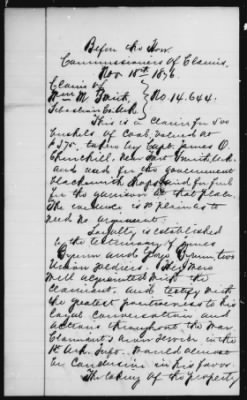 Before the Hon.
Commissioners of Claims.
Nov. 18th 1876.
Claim of
Wm M. }
Sebastian Co. Ark } No 14.644.
This is a claim for 500
bushels of coal, valued at
$175. taken by Capt. James O.
Churchill, near Fort Smith, Ark.
and used for the government
Blacksmith shops and for fuel
for the garrison at that place.
The evidence is so plain as to
need no argument.
Loyalty is established
by the testimony of James
and two
Union soldiers. They were
well acquainted with the
claimant, and testify with
the greatest positiveness to his
loyal conversation and
actions throughout the war.
Claimant's own service in the
1st Ark. Inf. would almost
be conclusive in his favor.
The taking of the property